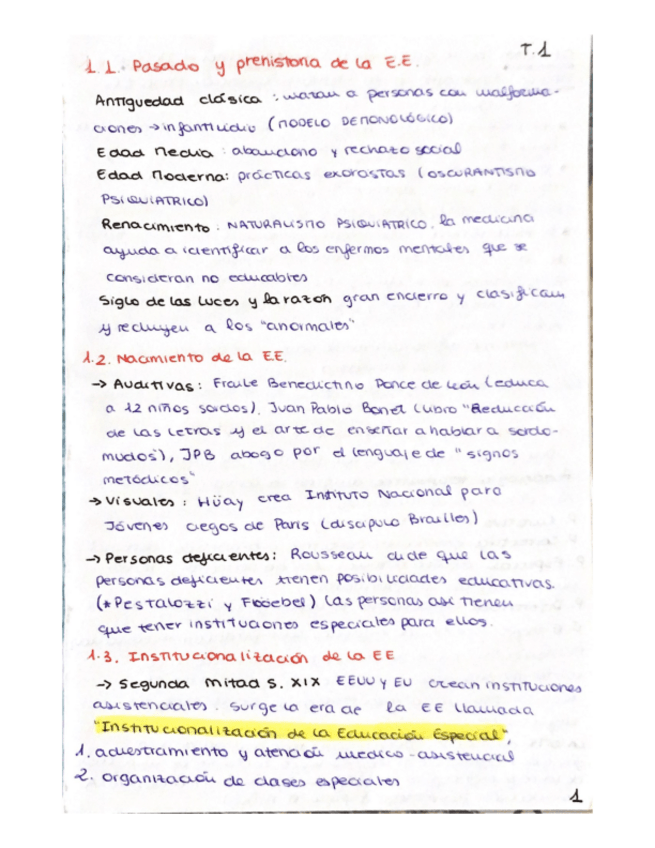 T.1
1.1. Pasado y prehistoria de la E.E.
Antiguedad clásica : matan a personas con malforma-
ciones → infanticidio (MODELO DEMONOLÓGICO)
Edad Media : abandono y rechazo social
Edad Moderna: prácticas exorcistas (OSCURANTISMO
PSIQUIATRICO)
Renacimiento : NATURALISMO PSIQUIATRICO. la medicina
ayuda a identificar a los enfermos mentales que se
consideran no educables
Siglo de las luces y la razon gran encierro y clasifican
y recluyen a los "anormales"
1.2. Nacimiento de la E.E.
→ Auditivas : Fraile Benedictino Ponce de León (educa
a 12 niños sordos). Juan Pablo Bonet (Libro "Reducción
de las letras y el arte de enseñar a hablar a sordo-
mudos"), JPB abogo por el lenguaje de "signos
metódicos"
→ Visuales : Hüay crea Instituto Nacional para
Jóvenes ciegos de Paris (discipulo Brailles)
→ Personas deficientes: Rousseau dice que las
personas deficientes tienen posibilidades educativas.
(*Pestalozzi y Fröebel) Las personas asi tienen
que tener instituciones especiales para ellos.
1.3. Institucionalización de la EE
→ Segunda mitad S. XIX EEUU y EU crean instituciones
asistenciales. Surge la era de la EE llamada
"Institucionalización de la Educación Especial",
1. adiestramiento y atención medico-asistencial
2. organización de clases especiales
1